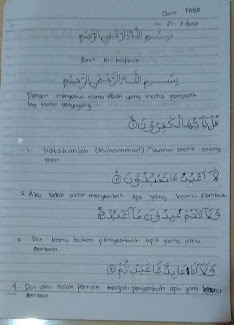 بِسْمِ اللّٰهِ الرَّحْمٰنِ الرَّحِيْمِ
Surat Al-
بِسْمِ اللّٰهِ الرَّحْمٰنِ الرَّحِيْمِ
Dengan menyebut nama Allah yang maha pengasih
lag maha penyayang
قُلْ يَا أَيُّهَا الْكٰفِرُوْنَ ①
1. Katakanlah (Muhammad), "Wahai orang-orang
kafir
لَا أَعْبُدُ مَا تَعْبُدُوْنَ ②
2. Aku tidak akan menyembah apa yang kamu sembah
وَلَا أَنْتُمْ عٰبِدُوْنَ مَا أَعْبُدُ ③
3. Dan kamu bukan penyembah apa yang aku
sembah
وَلَا أَنَا عَابِدٌ مَّا عَبَدْتُّمْ ④
4. Dan aku tidak pernah menjadi penyembah apa yang kamu
sembah